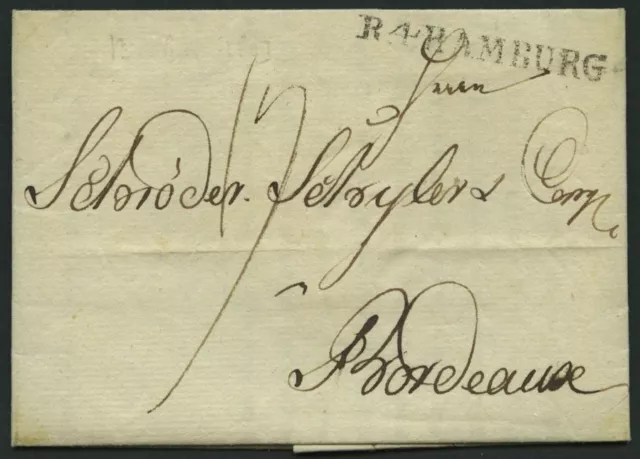 R.4.HAMBURG.
Herrn
Schröder. Schyler & Comp
à
Bordeaux